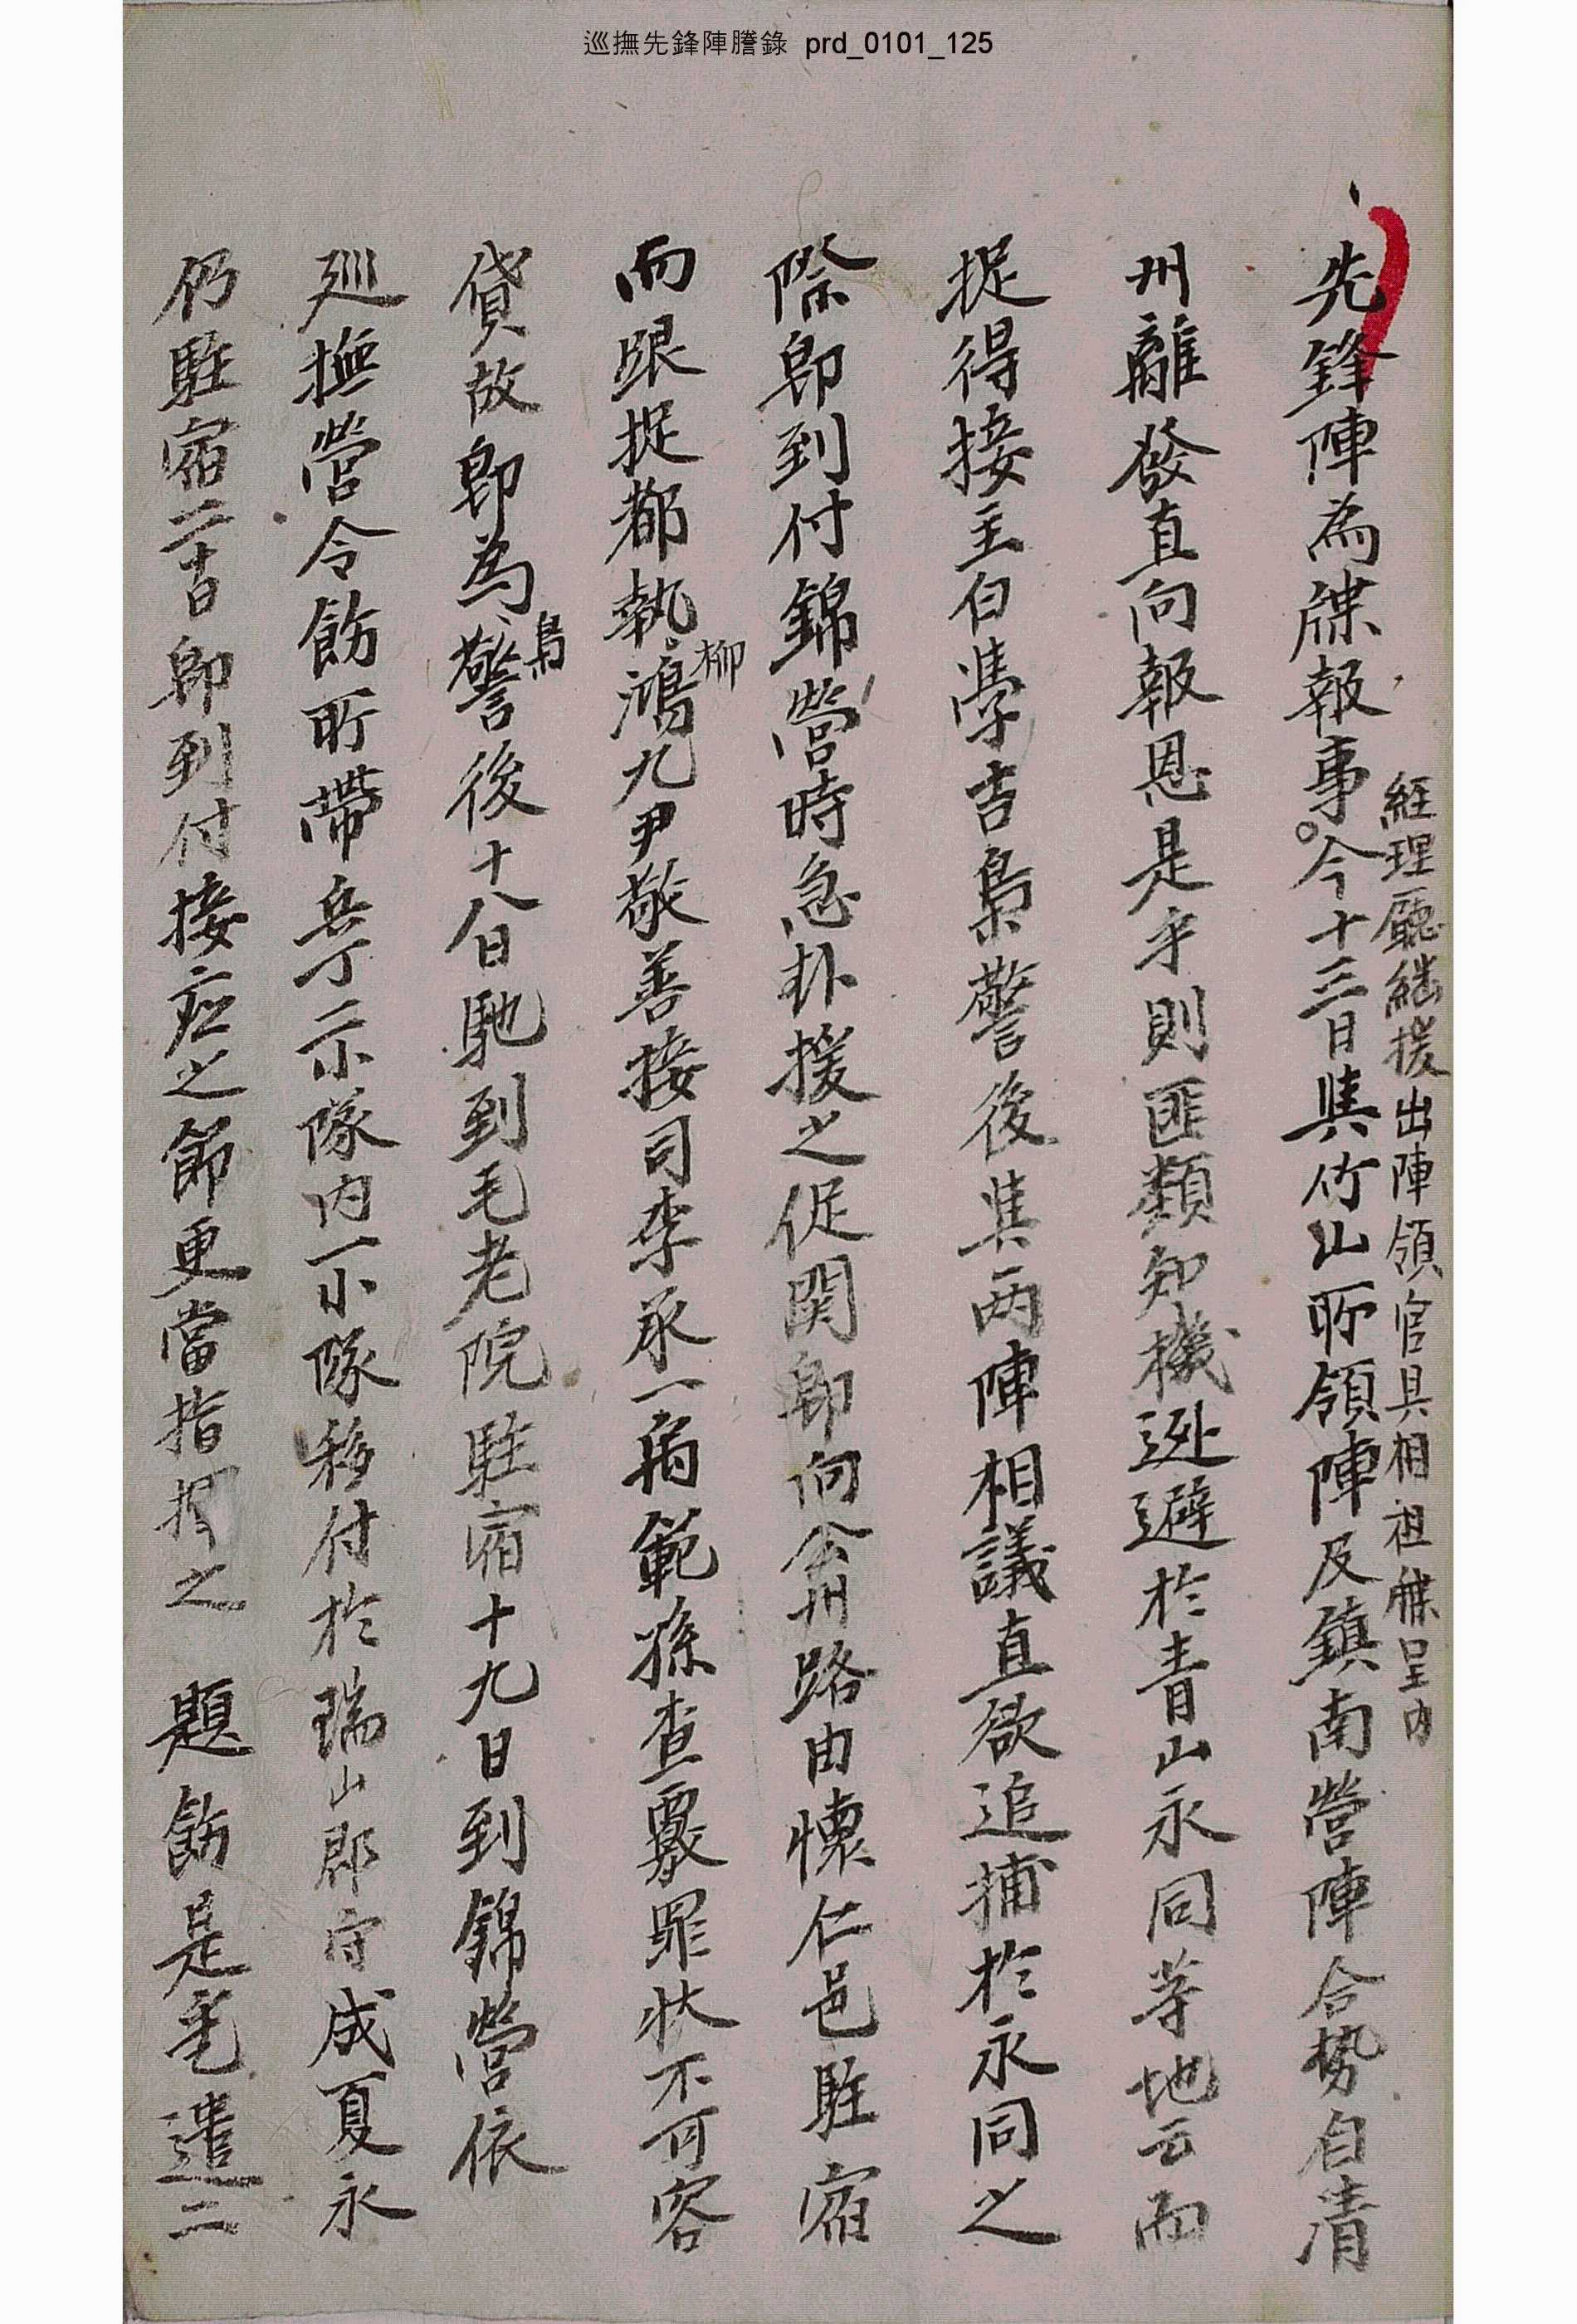 巡撫先鋒陣謄錄 prd_0101_125
先鋒陣為牒報事今十三日與竹山所領陣及鎮南營陣合勢自清
經理廳繼援出陣領官具相祖牒呈內
州離發直向報恩是乎則匪類知機逃避於青山永同等地云而
捉得接主白學吉梟警後與兩陣相議直欲追捕於永同之
際卽到付錦營時急赴援之促関卽向公州路由懷仁邑駐宿
而跟捉都執鴻九尹敬善接司李承一病範孫查覈罪狀不可容
柳
貸故卽為警後十八日馳到毛老院駐宿十九日到錦營依
梟
廵撫營令飭所帶兵丁二小隊內一小隊移付於瑞山郡守成夏永
仍駐宿二十日卽到付接應之節更當指揮之 題飭是乎遣二